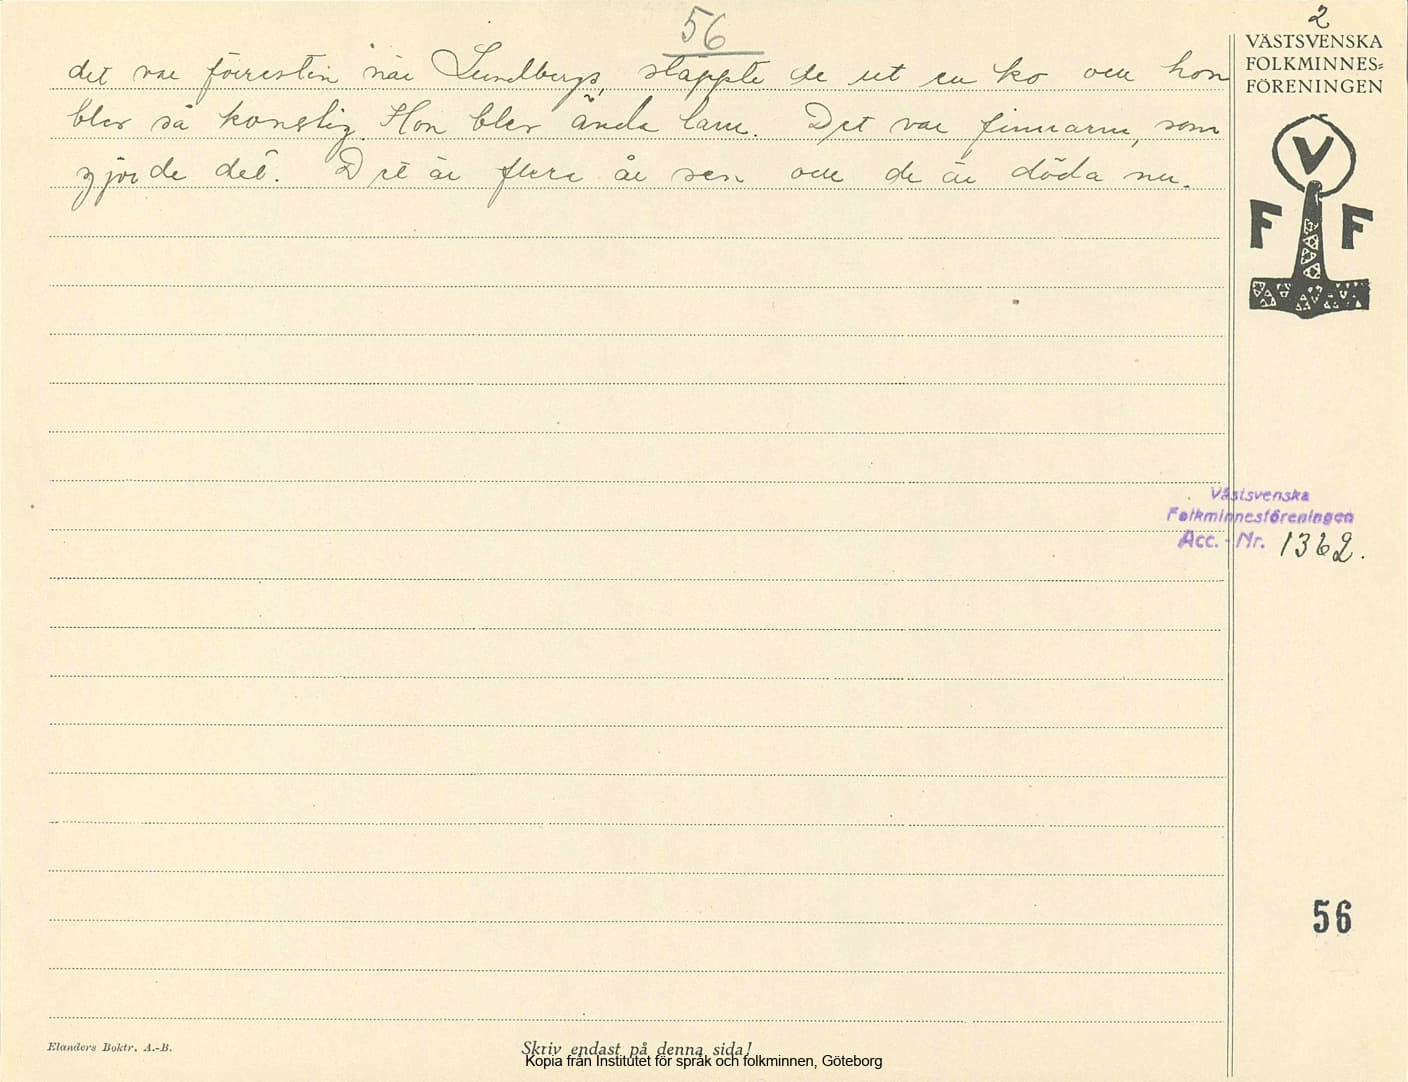 56
2
VÄSTSVENSKA
FOLKMINNES=
FÖRENINGEN
det var förresten när Lundbergs, släppte de ut en ko och hon
blev så konstig. Hon blev ända lam. Det var finnarna, som
gjorde det. Det är flera år sen och de är döda nu.
V
F F
Västsvenska
Folkminnesföreningen
Acc. - Nr. 1362.
56
Elanders Boktr. A.-B.
Skriv endast på denna sida!
Kopia från Institutet för språk och folkminnen, Göteborg